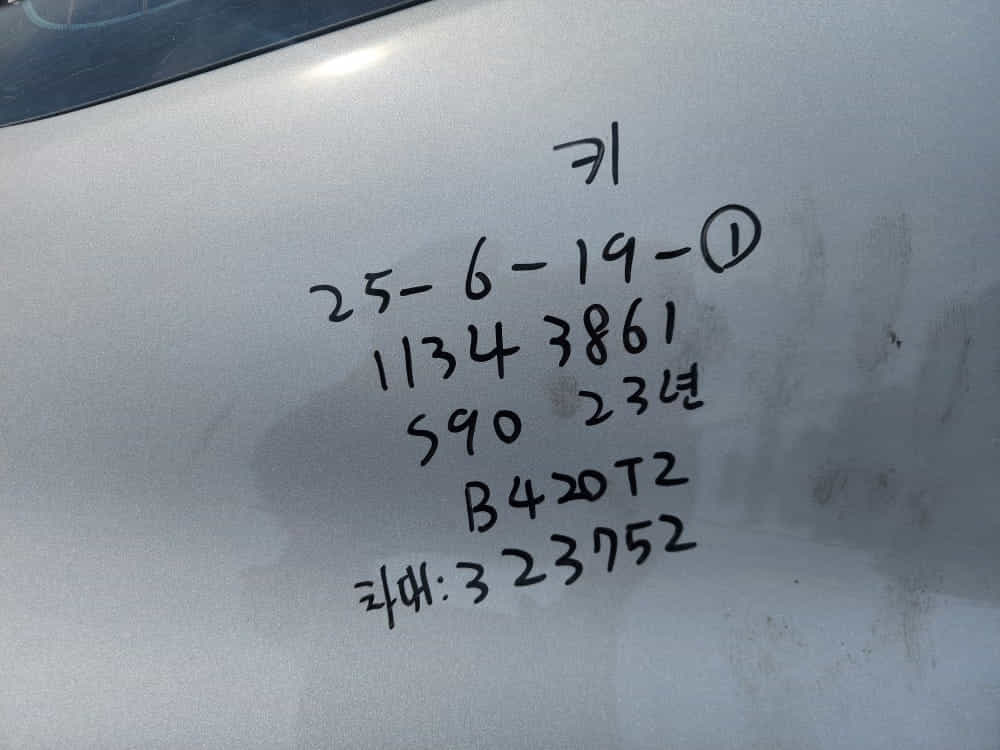 키
25-6-19-①
1134 3861
S90 23년
B420T2
차대:323752